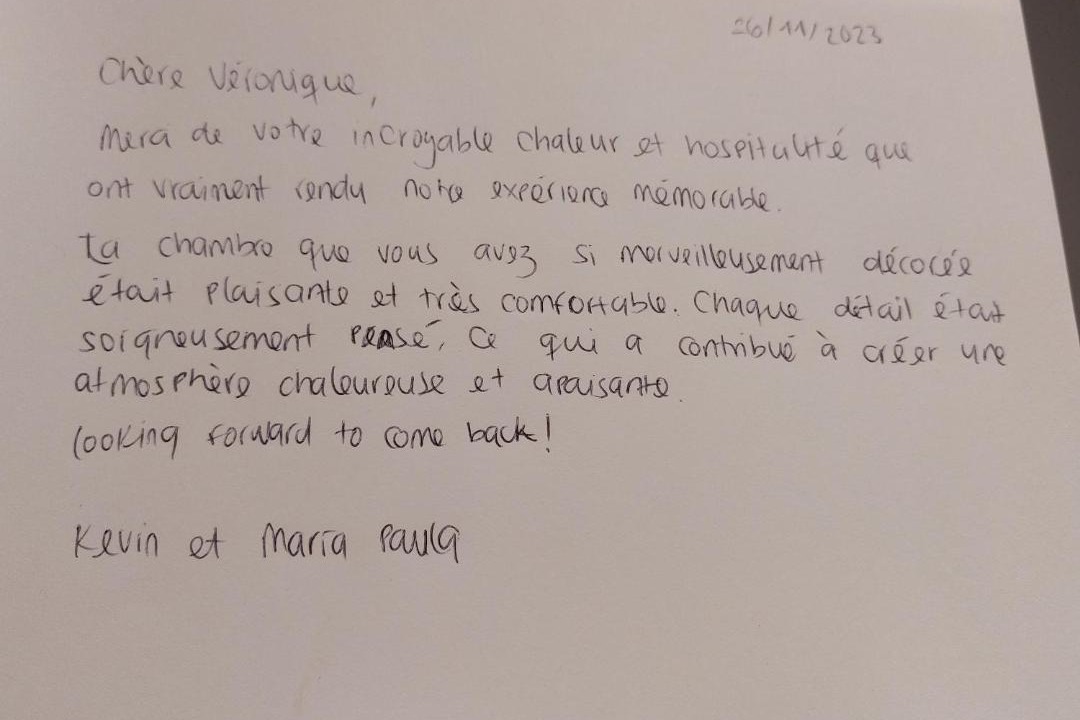 26/11/2023
Chère Véronique,
Merci de votre incroyable chaleur et hospitalité que
ont vraiment rendu notre expérience mémorable.
La chambre que vous avez si merveilleusement décorée
était plaisante et très comfortable. Chaque détail était
soigneusement pensé, ce qui a contribué à créer une
atmosphère chaleureuse et apaisante.
Looking forward to come back!
Kevin et María Paula